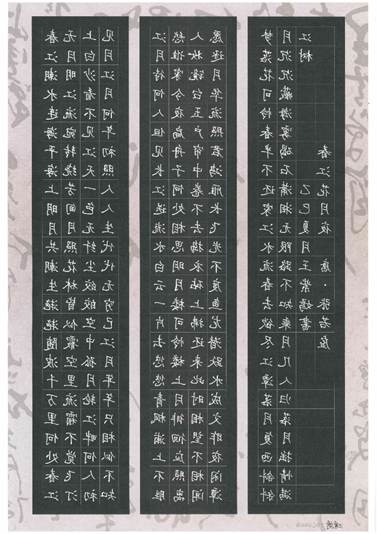 春江潮水连海平海上明月共潮生滟滟随波千万里何处春江
无月明江流宛转绕芳甸月照花林皆似霰空里流霜不觉飞汀
上白沙看不见江天一色无纤尘皎皎空中孤月轮江畔何人初
见月江月何年初照人人生代代无穷已江月年年只相似不知
江月待何人但见长江送流水白云一片去悠悠青枫浦上不胜
愁谁家今夜扁舟子何处相思明月楼可怜楼上月徘徊应照离
人妆镜台玉户帘中卷不去捣衣砧上拂还来此时相望不相闻
愿逐月华流照君鸿雁长飞光不度鱼龙潜跃水成文昨夜闲潭
梦落花可怜春半不还家江水流春去欲尽江潭落月复西斜斜
月沉沉藏海雾碣石潇湘无限路不知乘月几人归落月摇情满
江树
春江花月夜 唐·张若虚
乙巳夏月 王